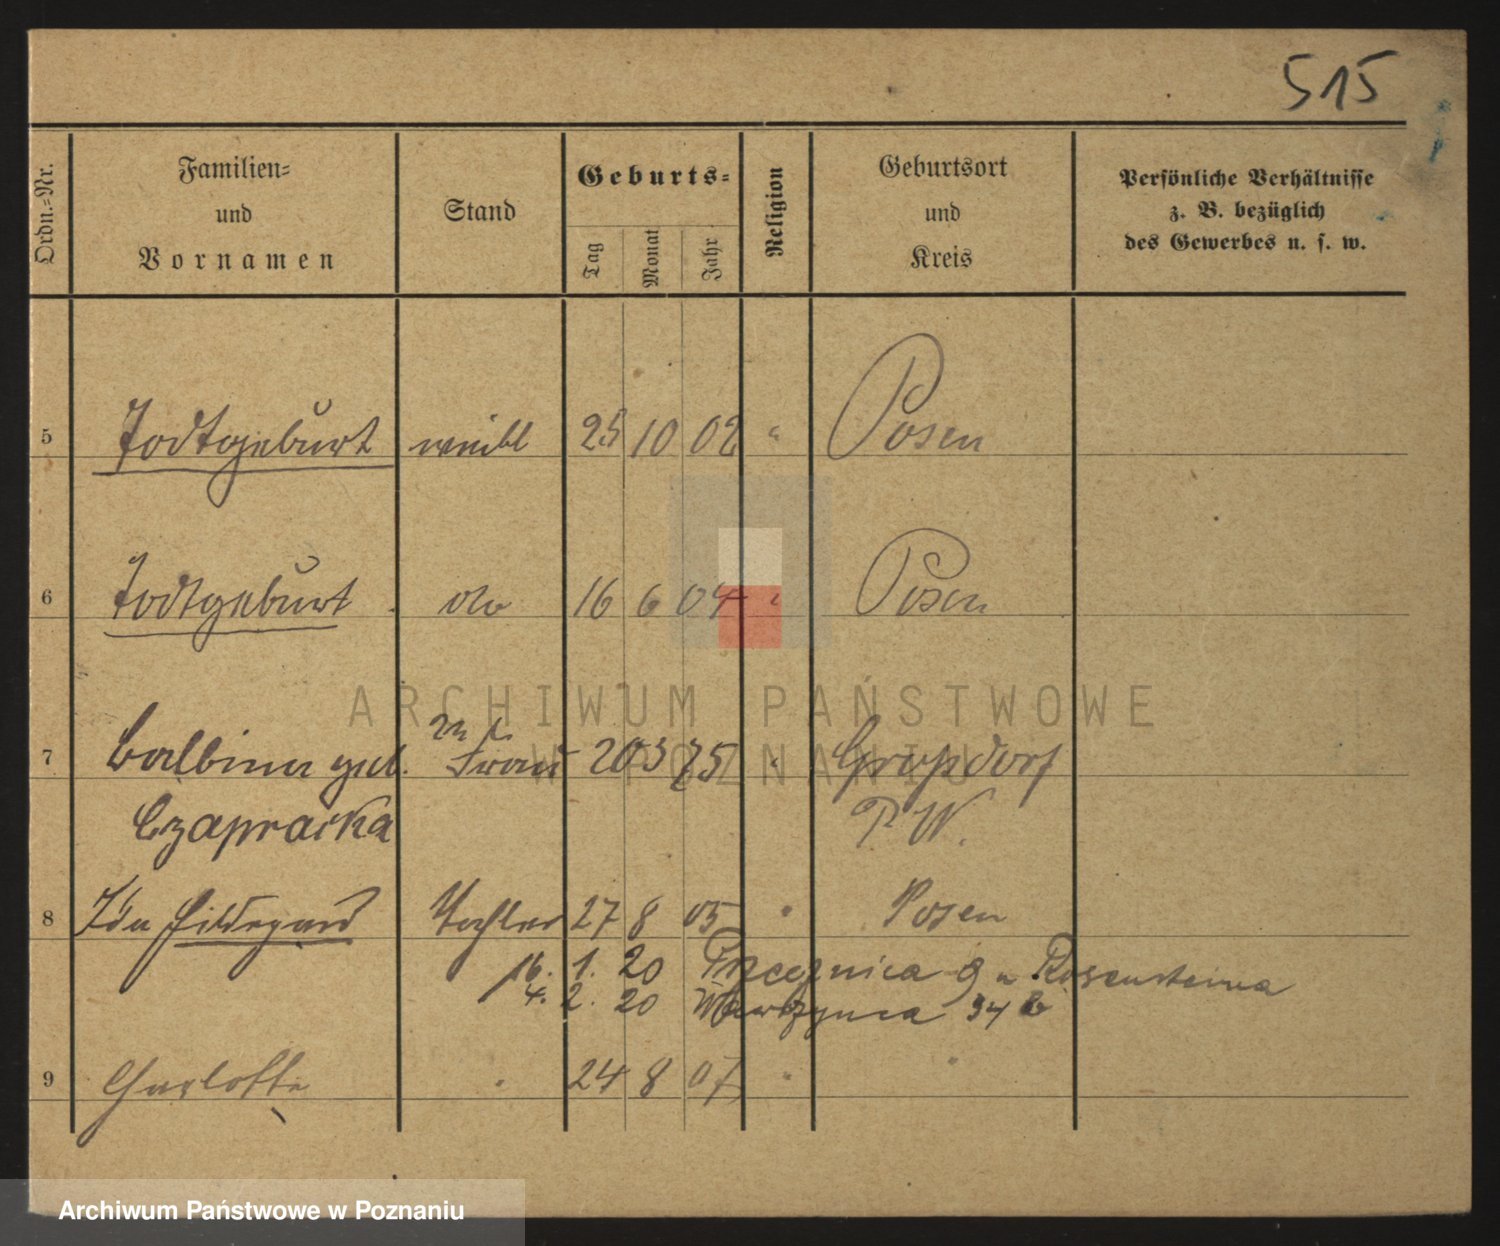 515
Ordn.=Nr.
Familien=
und
Vornamen
Stand
Geburts=
Tag
Monat
Jahr
Religion
Geburtsort
und
Kreis
Persönliche Verhältnisse
z. B. bezüglich
des Gewerbes u. s. w.
5 Todtgeburt weibl 25 10 02 " Posen
6 Todtgeburt do 16 6 04 " Posen
ARCHIWUM PAŃSTWOWE
W POZNANIU
7 Balbina geb. Frau 20 3 75 " Großdorf
Czapracka P. W.
8 Ida Hildegard Tochter 27 8 05 " Posen
16. 1. 20 Pszczynica 9 Rosensteina
4. 2. 20 Wawrzynca 34
9 Charlotte " 24 8 07 " "
Archiwum Państwowe w Poznaniu